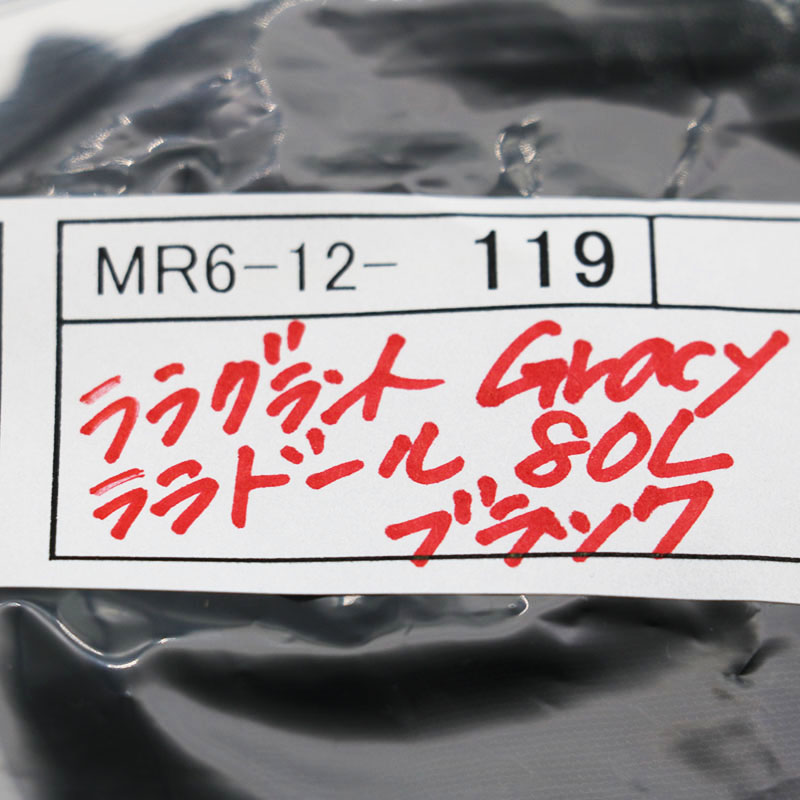 MR6-12- 119
ララグラント Gracy
ララドール 80L
ブラック